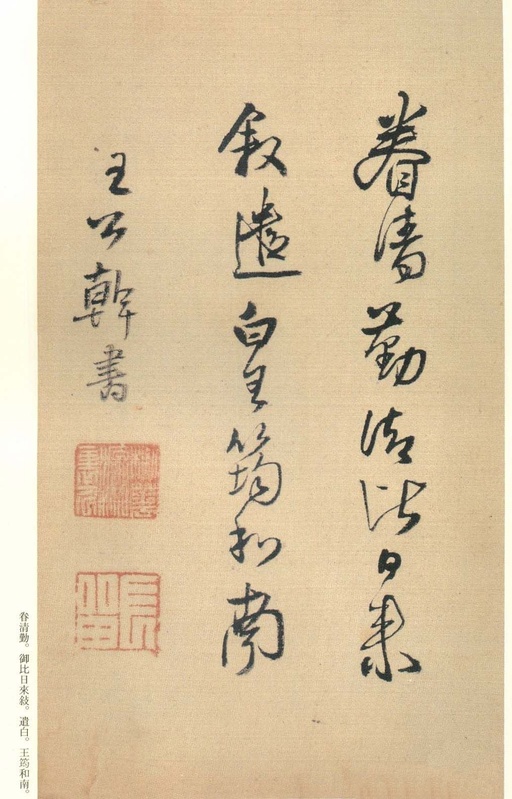 眷清勤御比日来
叙遣白王筠和南
王公幹書
眷清勤。御比日來敍。遣白。王筠和南。